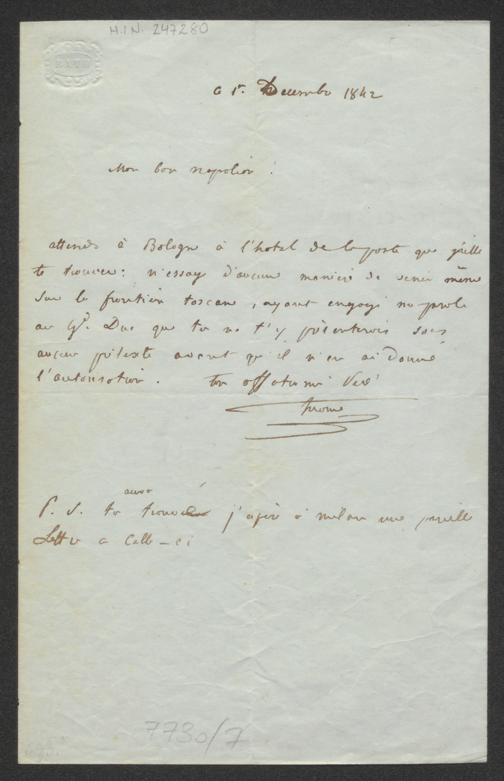 H.I.N. 247280
BATH
Decembre 1842
Mon bon napoléon !
attends à Bologne à l'hotel de la poste que j'aille
te trouver : n'essay d'aucune maniere de venir même
sur la frontiere toscane, ayant engagé ma parole
au Gd. Duc que tu ne t'y présenterois sous
aucun prétexte avant qu'il n'en ai donné
l'autorisation. ton affectionné
Jerome
P. S. tu auras trouvé j'espère à milan une pareille
Lettre a Celle-ci
7730/7